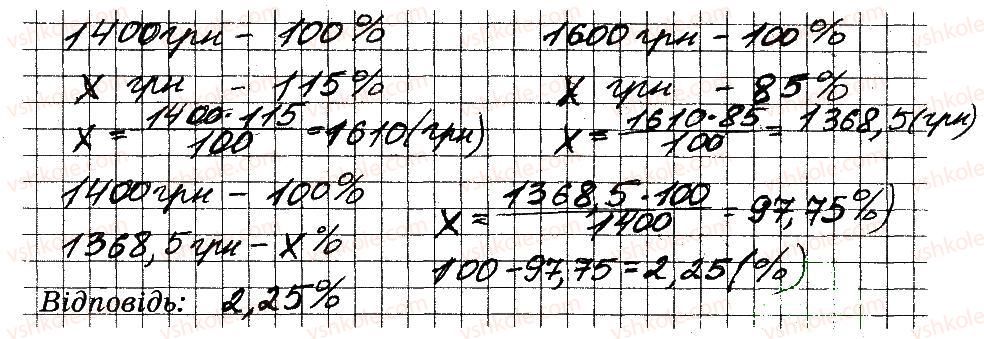 1400 грн – 100%
x грн – 115%
x = 1400·115/100 = 1610 (грн)
1600 грн – 100%
x грн – 85%
x = 1610·85/100 = 1368,5 (грн)
1400 грн – 100%
1368,5 грн – x%
x = 1368,5·100/1400 = 97,75%)
100 – 97,75 = 2,25 (%)
Відповідь: 2,25%